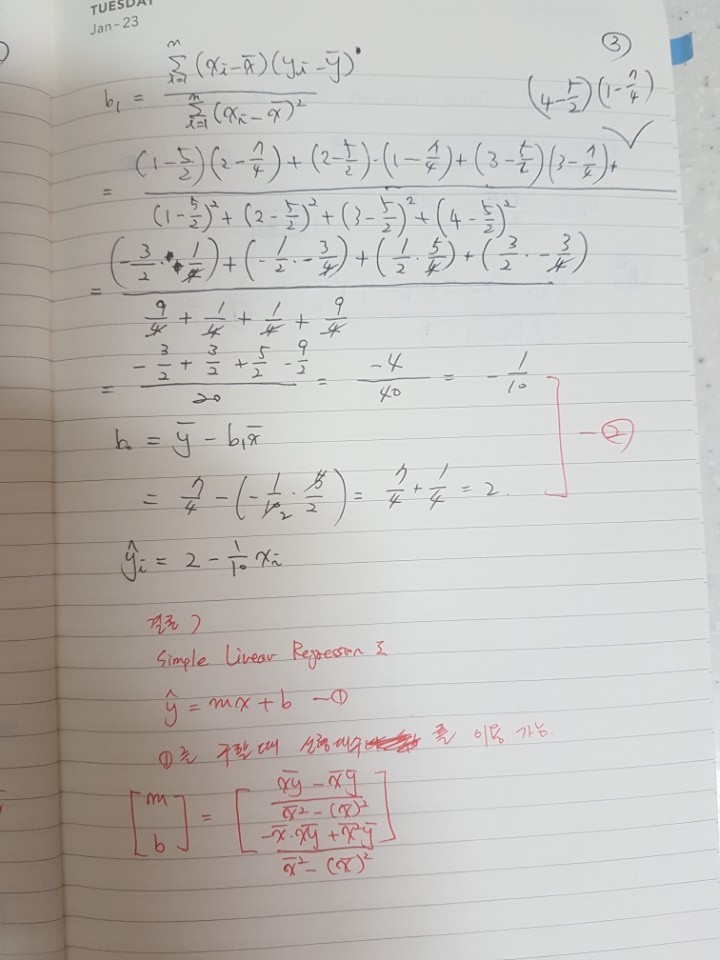 TUESDAY
Jan-23
③
b₁ = \frac{\sum_{i=1}^{n} (x_i - \bar{x})(y_i - \bar{y})}{\sum_{i=1}^{n} (x_i - \bar{x})^2}
(4 - \frac{5}{2})(1 - \frac{7}{4})
= \frac{(1 - \frac{5}{2})(2 - \frac{7}{4}) + (2 - \frac{5}{2}) \cdot (1 - \frac{7}{4}) + (3 - \frac{5}{2})(3 - \frac{7}{4}) +}{(1 - \frac{5}{2})^2 + (2 - \frac{5}{2})^2 + (3 - \frac{5}{2})^2 + (4 - \frac{5}{2})^2}
= \frac{(-\frac{3}{2} \cdot \frac{1}{4}) + (-\frac{1}{2} \cdot -\frac{3}{4}) + (\frac{1}{2} \cdot \frac{5}{4}) + (\frac{3}{2} \cdot -\frac{3}{4})}{\frac{9}{4} + \frac{1}{4} + \frac{1}{4} + \frac{9}{4}}
= \frac{-\frac{3}{2} + \frac{3}{2} + \frac{5}{2} - \frac{9}{2}}{20} = \frac{-4}{40} = -\frac{1}{10}
b₀ = \bar{y} - b₁\bar{x}
- ②
= \frac{7}{4} - (-\frac{1}{10} \cdot \frac{5}{2}) = \frac{7}{4} + \frac{1}{4} = 2.
\hat{y}_i = 2 - \frac{1}{10} x_i
결론)
Simple Linear Regression 도
\hat{y} = mx + b - ①
①를 구할 때 선형대수 를 이용 가능.
\begin{bmatrix} m \\ b \end{bmatrix} = \begin{bmatrix} \frac{\overline{xy} - \bar{x}\bar{y}}{\overline{x^2} - (\bar{x})^2} \\ \frac{-\bar{x} \cdot \overline{xy} + \overline{x^2}\bar{y}}{\overline{x^2} - (\bar{x})^2} \end{bmatrix}